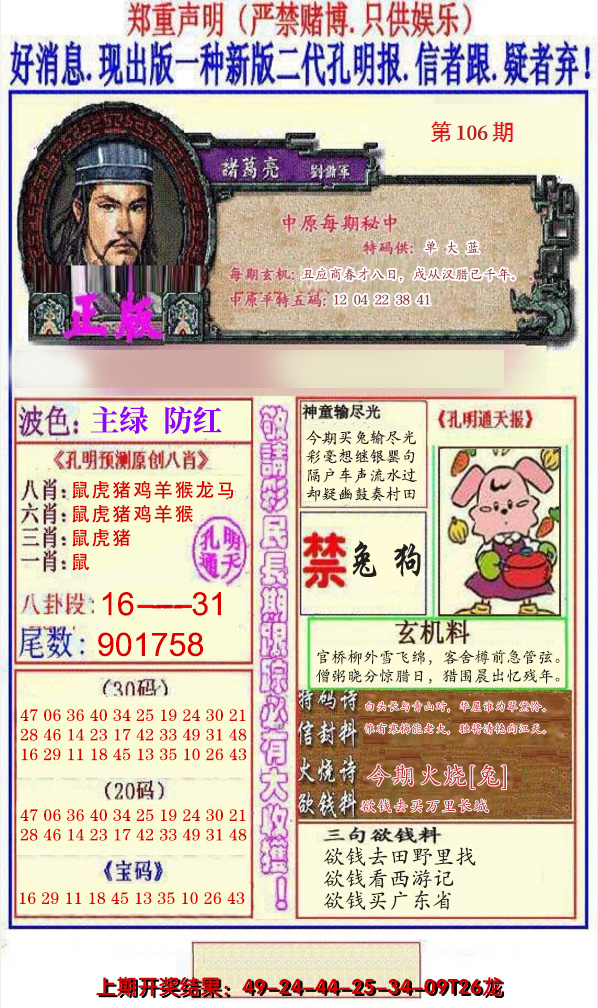 郑重声明（严禁赌博.只供娱乐）
好消息.现出版一种新版二代孔明报.信者跟.疑者弃!
第106期
諸葛亮
劉備軍
中原每期秘中
特码供：单大蓝
每期玄机:丑应商春才八日，戌从汉腊已千年。
中原平特五码:12 04 22 38 41
正版
波色：主绿 防红
《孔明预测原创八肖》
八肖:鼠虎猪鸡羊猴龙马
六肖:鼠虎猪鸡羊猴
三肖:鼠虎猪
一肖:鼠
孔明
通天
八卦段:16——31
尾数:901758
(30码)
47 06 36 40 34 25 19 24 30 21
28 46 14 23 17 42 33 49 31 48
16 29 11 18 45 13 35 10 26 43
(20码)
47 06 36 40 34 25 19 24 30 21
28 46 14 23 17 42 33 49 31 48
《宝码》
16 29 11 18 45 13 35 10 26 43
敬請彩民長期跟踪必有大收獲！
神童输尽光
今期买兔输尽光
彩毫想继银婴句
隔户车声流水过
却疑幽鼓奏村田
《孔明通天报》
禁兔 狗
玄机料
官桥柳外雪飞绵，客舍樽前急管弦。
僧粥晓分惊腊日，猎围晨出忆残年。
特码诗
白头长与青山对，华屋谁为翠黛怜。
信封料
谁有寒梅能老大，独将清艳向江天。
火烧诗
今期火烧[兔]
欲钱料
欲钱去买万里长城
三句欲钱料
欲钱去田野里找
欲钱看西游记
欲钱买广东省
上期开奖结果：49-24-44-25-34-09T26龙